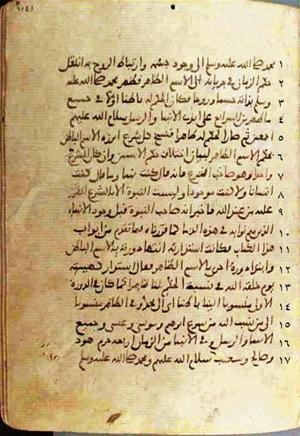 ١ محمد صلى الله عليه وسلم الى وجود جسمه وارتباط الروح به انتقل
٢ حكم الزمان في جريانه الى الاسم الظاهر فظهر محمد صلى الله عليه
٣ وسلم بذاته جسما وروحا فكان الحكم له باطنا اولا في جميع
٤ ما ظهر من الشرايع على ايدي الانبيا والرسل سلام الله عليهم
٥ اجمعين ثم صار الحكم له ظاهرا فنسخ كل شرع ابرزه الاسم الباطن
٦ بحكم الاسم الظاهر لبيان اختلاف حكم الاسمين وان كان المشرع
٧ واحدا وهو صاحب الشرع فانه قال كنت نبيا وما قال كنت
٨ انسانا ولا كنت موجودا وليست النبوة الا بالشرع المقرر
٩ عليه من عند الله فاخبر انه صاحب النبوة قبل وجود الانبياء
١٠ الذين هم نوابه في هذه الدنيا كما قررناه فيما تقدم من ابواب
١١ هذا الكتاب فكانت استدارته انتهاء دورته بالاسم الباطن
١٢ وابتداء دورة اخرى بالاسم الظاهر فقال استدار كهيئته
١٣ يوم خلقه الله في نسبة الحكم لنا ظاهرا كما كان في الدورة
١٤ الاولى منسوبا الينا باطنا اي الى محمد وفي الظاهر منسوبا
١٥ الى من نسب اليه من شرع ابرهيم وموسى وعيسى وجميع
١٦ الانبيا والرسل وفي الانبيا من الزمان اربعة حرم هود
١٧ وصالح وشعيب سلام الله عليهم ومحمد صلى الله عليه وسلم